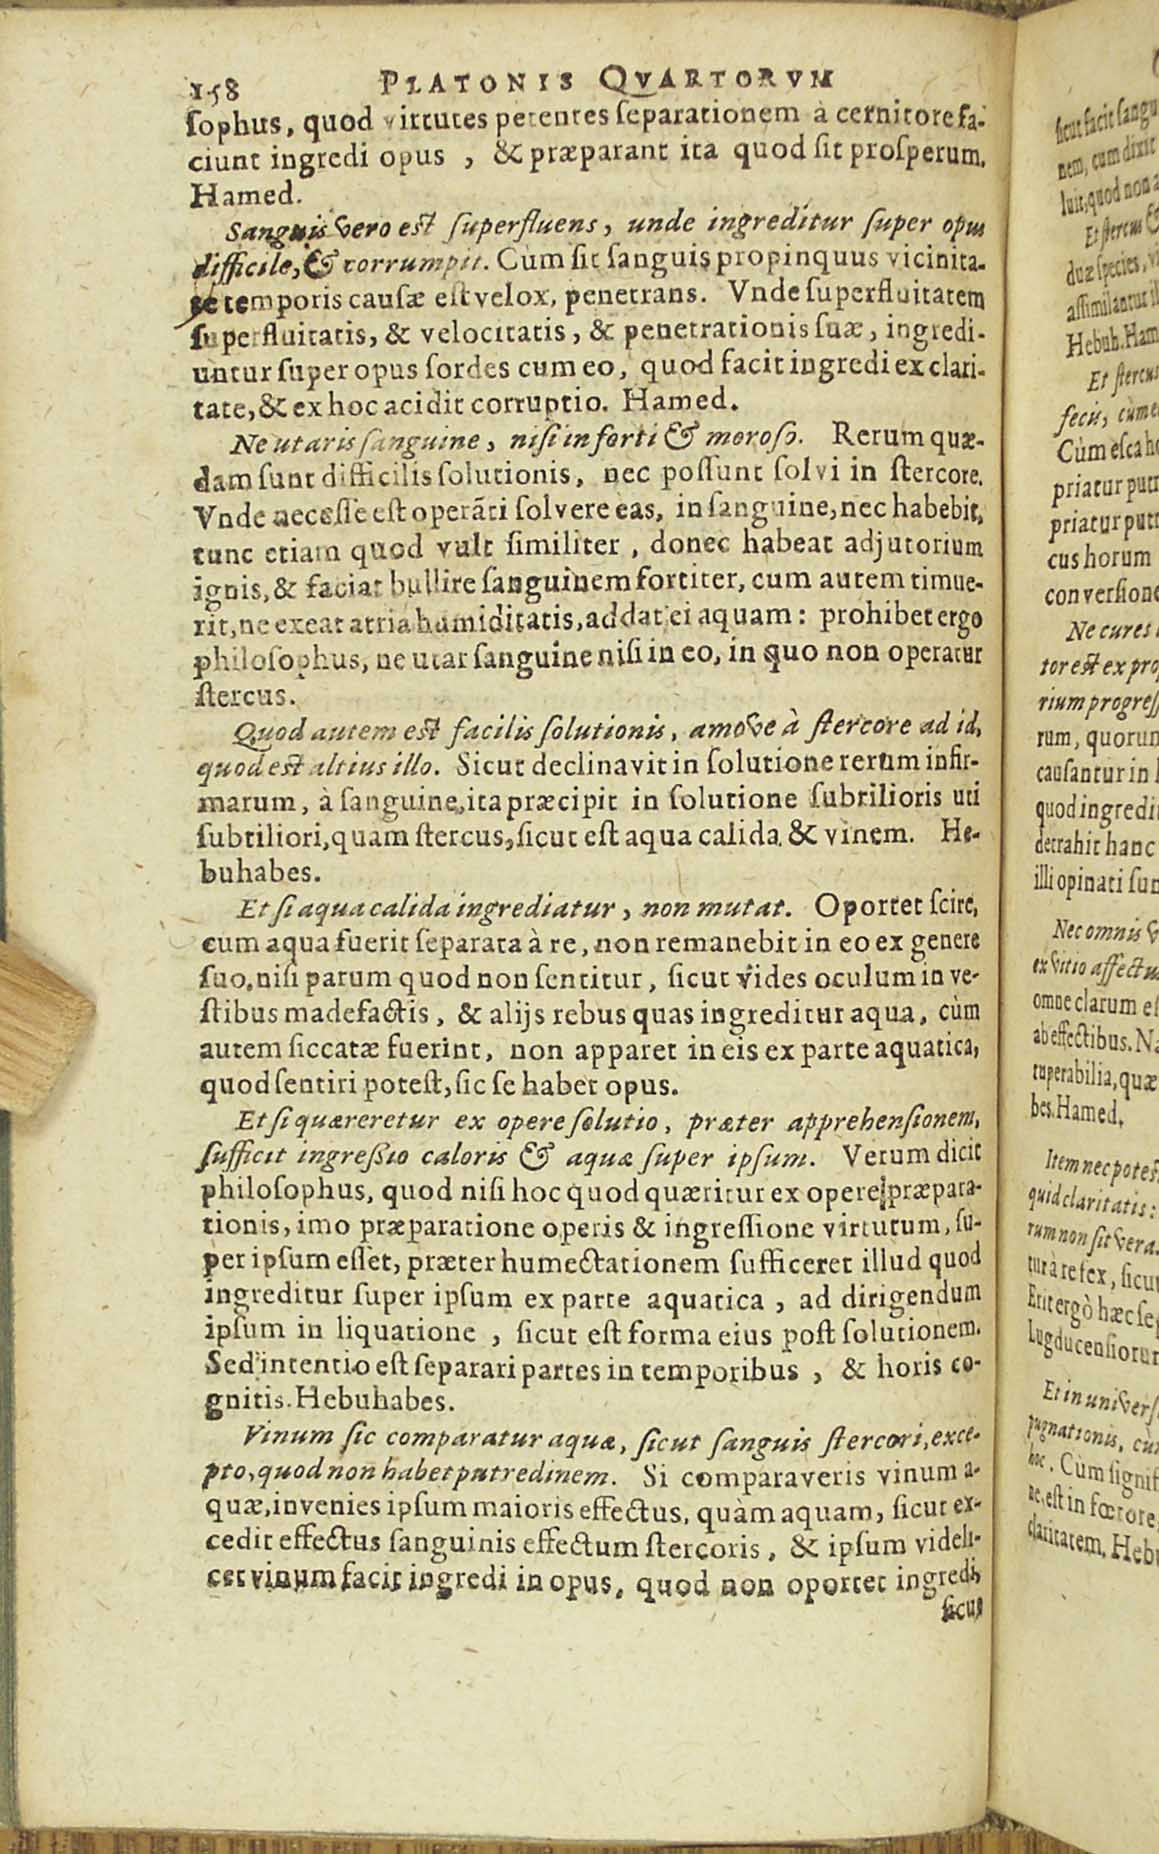 158 PLATONIS QVARTORVM
sophus, quod virtutes petentes separationem à cernitore fa-
ciunt ingredi opus, & præparant ita quod sit prosperum.
Hamed.
Sanguis vero est superfluens, unde ingreditur super opus
difficile, & corrumpit. Cum sit sanguis propinquus vicinita-
te temporis causæ est velox, penetrans. Vnde superfluitatem
superfluitatis, & velocitatis, & penetrationis suæ, ingredi-
untur super opus sordes cum eo, quod facit ingredi ex clari-
tate, & ex hoc acidit corruptio. Hamed.
Ne utaris sanguine, nisi in forti & moroso. Rerum quæ-
dam sunt difficilis solutionis, nec possunt solvi in stercore.
Vnde necesse est operãti solvere eas, in sanguine, nec habebit,
tunc etiam quod vult similiter, donec habeat adjutorium
ignis, & faciat bullire sanguinem fortiter, cum autem timue-
rit, ne exeat atria humiditatis, addat ei aquam: prohibet ergo
philosophus, ne utar sanguine nisi in eo, in quo non operatur
stercus.
Quod autem est facilis solutionis, amove à stercore ad id,
quod est altius illo. Sicut declinavit in solutione rerum infir-
marum, à sanguine, ita præcipit in solutione subtilioris uti
subtiliori, quam stercus, sicut est aqua calida, & vinem. He-
buhabes.
Et si aqua calida ingrediatur, non mutat. Oportet scire,
cum aqua fuerit separata à re, non remanebit in eo ex genere
suo, nisi parum quod non sentitur, sicut vides oculum in ve-
stibus madefactis, & alijs rebus quas ingreditur aqua, cùm
autem siccatæ fuerint, non apparet in eis ex parte aquatica,
quod sentiri potest, sic se habet opus.
Et si quæreretur ex opere solutio, præter apprehensionem,
sufficit ingressio caloris & aquæ super ipsum. Verum dicit
philosophus, quod nisi hoc quod quæritur ex opere præpara-
tionis, imo præparatione operis & ingressione virtutum, su-
per ipsum esset, præter humectationem sufficeret illud quod
ingreditur super ipsum ex parte aquatica, ad dirigendum
ipsum in liquatione, sicut est forma eius post solutionem.
Sed intentio est separari partes in temporibus, & horis co-
gnitis. Hebuhabes.
Vinum sic comparatur aquæ, sicut sanguis stercori, exce-
pto, quod non habet putredinem. Si comparaveris vinum a-
quæ, invenies ipsum maioris effectus, quàm aquam, sicut ex-
cedit effectus sanguinis effectum stercoris, & ipsum videli-
cet vinum facit ingredi in opus, quod non oportet ingredi,
sicut
sicut facit sangu
nem, cum dixit
luit, quod non a
Et stercus &
duæ species, v
assimilantur il
Hebuh. Ham
Et stercus
fecis, cùm e
Cùm esca h
priatur putr
priatur putr
cus horum
conversione
Ne cures
tor est ex pro
rium progress
rum, quorum
causantur in
quod ingredi
detrahit hanc
illi opinati sun
Nec omnis v
ex vitio affectu
omne clarum es
ab effectibus. Na
tuperabilia, quæ
bes. Hamed.
Item nec potes
quid claritatis:
rum non sit vera.
tur à re fex, sicu
Erit ergò hæc se
Lugducensiorum
Et in univers
pugnationis, cùm
hoc. Cùm signif
ne, est in fœtore,
claritatem. Heb